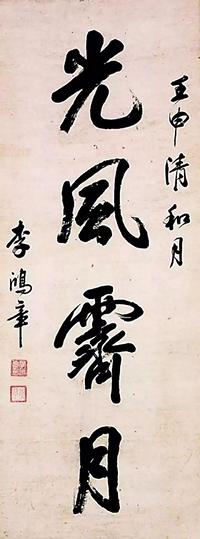 壬申清和月
光風霽月
李鴻章